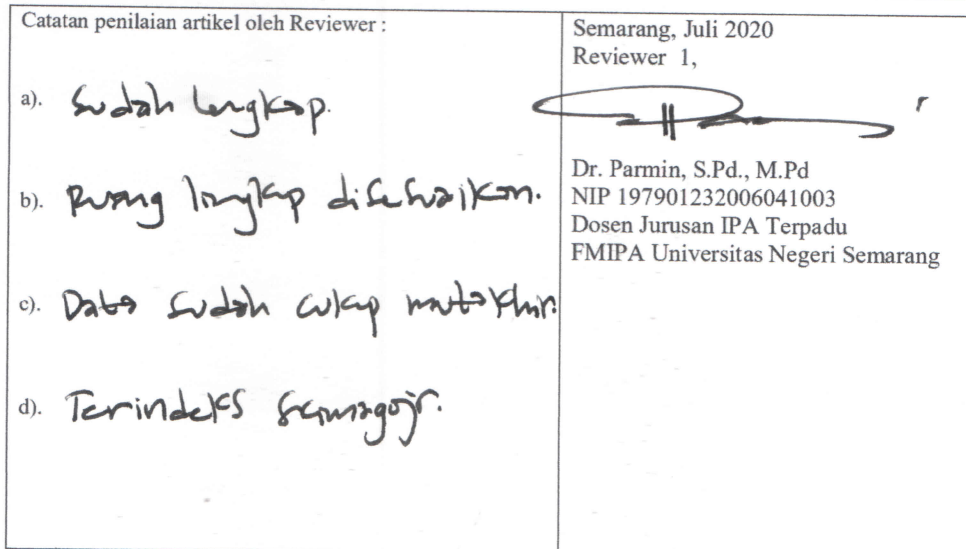 Catatan penilaian artikel oleh Reviewer :
a). Sudah lengkap.
b). Ruang lingkup disesuaikan.
c). Data sudah cukup mutakhir.
d). Terindeks Scimagojr.
Semarang, Juli 2020
Reviewer 1,
Dr. Parmin, S.Pd., M.Pd
NIP 197901232006041003
Dosen Jurusan IPA Terpadu
FMIPA Universitas Negeri Semarang